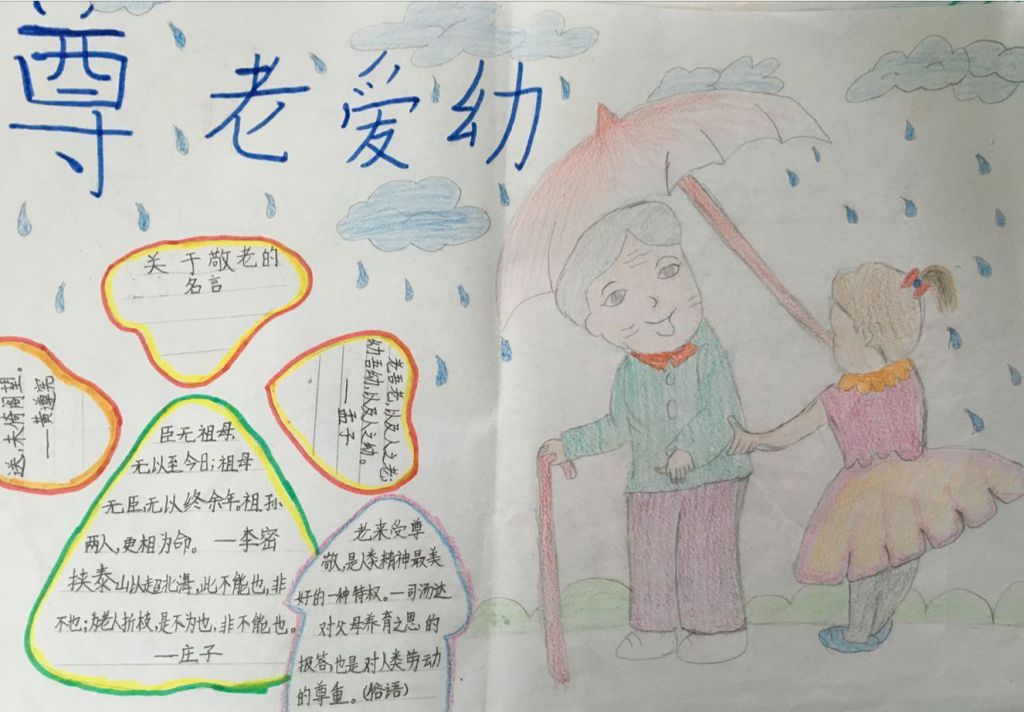 尊老爱幼
关于敬老的
名言
送，未倚闾望。
——黄遵宪
老吾老，以及人之老；
幼吾幼，以及人之幼。
——孟子
臣无祖母，
无以至今日；祖母
无臣，无以终余年。祖孙
两人，更相为命。——李密
挟泰山以超北海，此不能也，非
不也；为老人折枝，是不为也，非不能也。
——庄子
老来受尊
敬，是人类精神最美
好的一种特权。——司汤达
对父母养育之恩的
报答，也是对人类劳动
的尊重。（俗语）